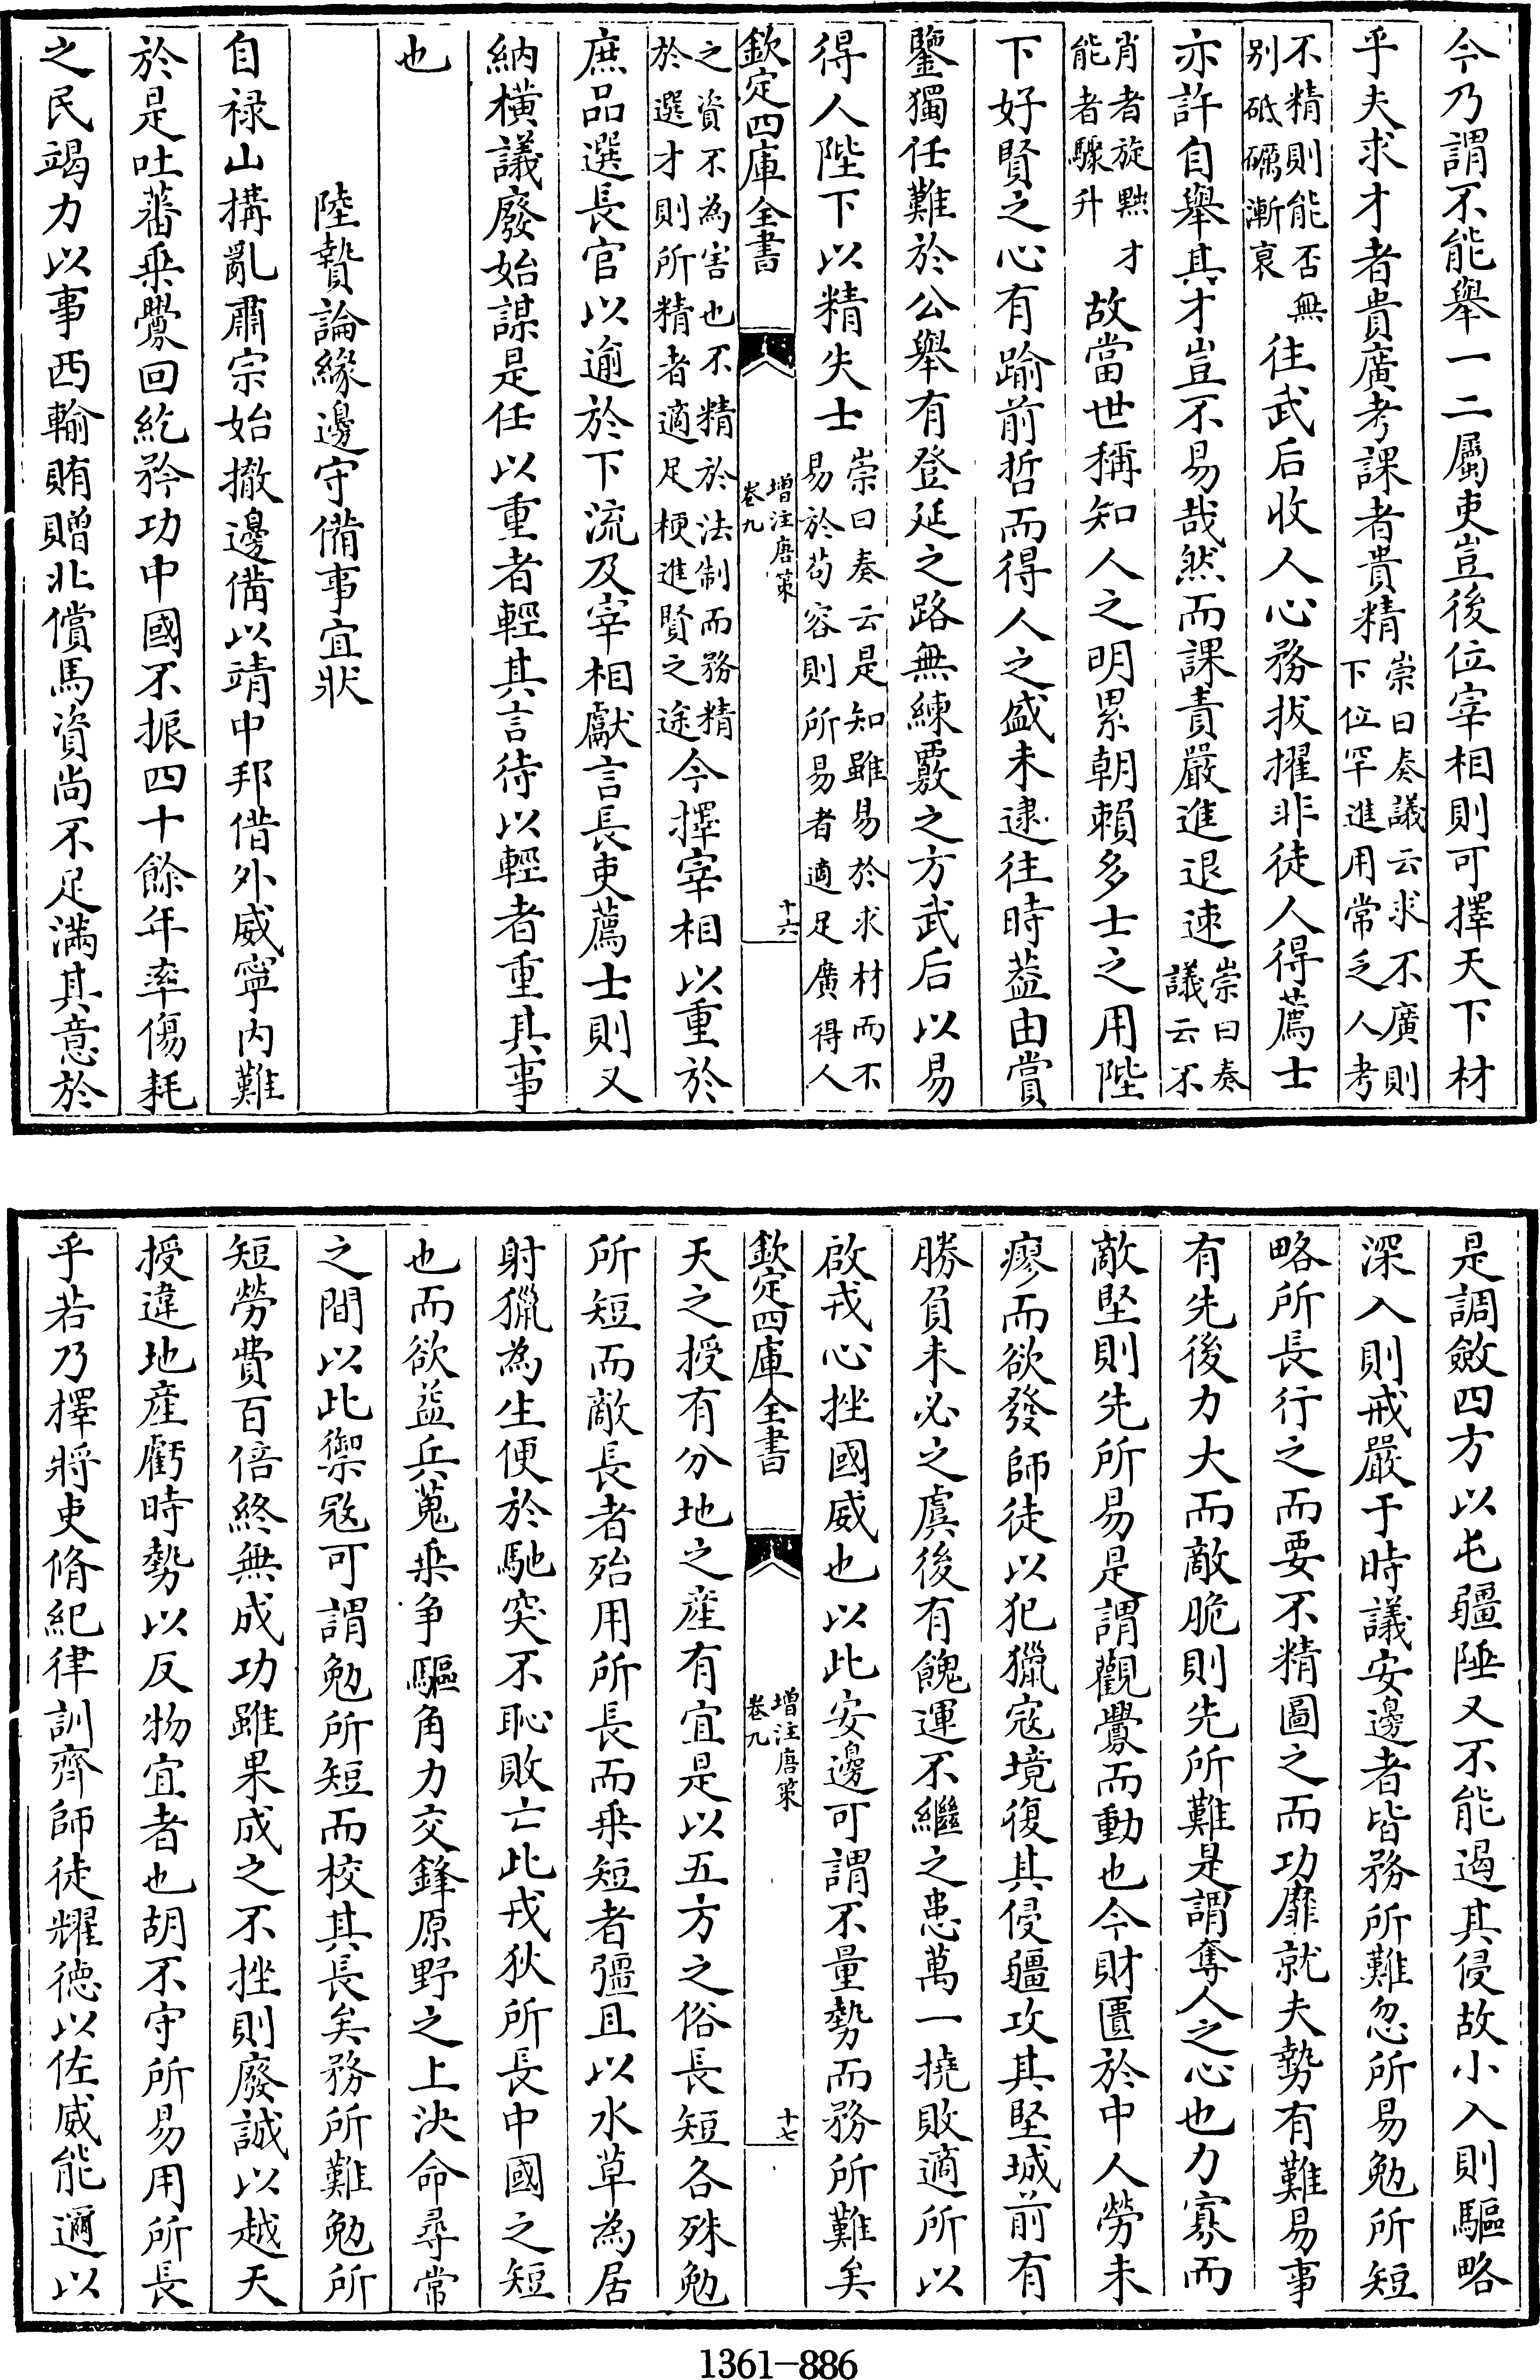 今乃謂不能舉一二屬吏豈後位宰相則可擇天下材
乎夫求才者貴廣考課者貴精崇曰奏議云求不廣則下位罕進用常乏人考
不精則能否無别砥礪漸衰往武后收人心務拔擢非徒人得薦士
亦許自舉其才豈不易哉然而課責嚴進退速崇曰奏議云不
肖者旋黜才能者驟升故當世稱知人之明累朝賴多士之用陛
下好賢之心有踰前哲而得人之盛未逮往時葢由賞
鑒獨任難於公舉有登延之路無練覈之方武后以易
得人陛下以精失士崇曰奏云是知雖易於求材而不易於苟容則所易者適足廣得人
欽定四庫全書
增注唐策
卷九
十六
之資不為害也不精於法制而務精於選才則所精者適足梗進賢之途今擇宰相以重於
庶品選長官以逾於下流及宰相獻言長吏薦士則又
納橫議廢始謀是任以重者輕其言待以輕者重其事
也
陸贄論緣邊守備事宜狀
自禄山搆亂肅宗始撤邊備以靖中邦借外威寧内難
於是吐蕃乘釁回紇矜功中國不振四十餘年率傷耗
之民竭力以事西輸賄贈北償馬資尚不足满其意於
是調斂四方以屯疆陲又不能遏其侵故小入則驅略
深入則戒嚴于時議安邊者皆務所難忽所易勉所短
略所長行之而要不精圖之而功靡就夫勢有難易事
有先後力大而敵脆則先所難是謂奪人之心也力寡而
敵堅則先所易是謂觀釁而動也今財匱於中人勞未
瘳而欲發師徒以犯獵寇境復其侵疆攻其堅城前有
勝負未必之虞後有餽運不繼之患萬一撓敗適所以
啟戎心挫國威也以此安邊可謂不量勢而務所難矣
欽定四庫全書
增注唐策
卷九
十七
天之授有分地之産有宜是以五方之俗長短各殊勉
所短而敵長者殆用所長而乘短者彊且以水草為居
射獵為生便於馳突不恥敗亡此戎狄所長中國之短
也而欲益兵蒐乘争驅角力交鋒原野之上決命尋常
之間以此禦寇可謂勉所短而校其長矣務所難勉所
短勞費百倍終無成功雖果成之不挫則廢誠以越天
授違地産虧時勢以反物宜者也胡不守所易用所長
乎若乃擇將吏脩紀律訓齊師徒耀德以佐威能邇以
1361-886